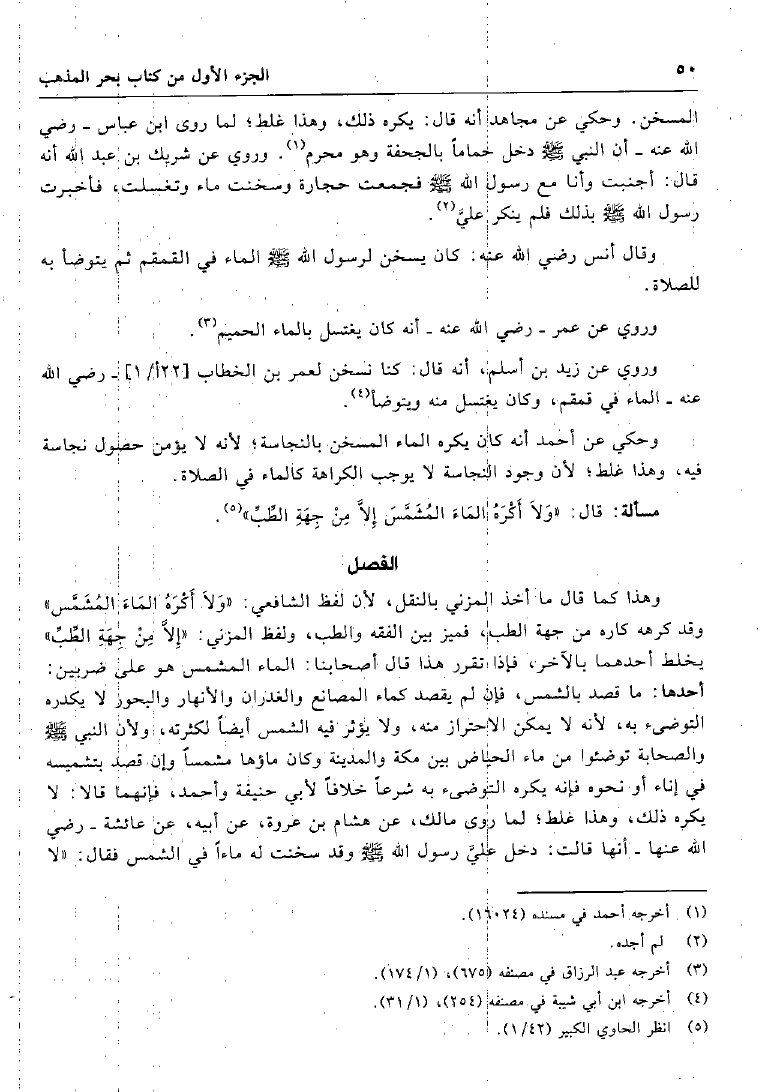 ٥٠
الجزء الأول من كتاب بحر المذهب
المسخن. وحكي عن مجاهد أنه قال: يكره ذلك، وهذا غلط؛ لما روى ابن عباس ـ رضي
الله عنه ـ أن النبي ﷺ دخل حماماً بالجحفة وهو محرم(١). وروي عن شريك بن عبد الله أنه
قال: أجنبت وأنا مع رسول الله ﷺ فجمعت حجارة وسخنت ماء وتغسلت، فأخبرت
رسول الله ﷺ بذلك فلم ينكر عليَّ(٢).
وقال أنس رضي الله عنه: كان يسخن لرسول الله ﷺ الماء في القمقم ثم يتوضأ به
للصلاة.
وروي عن عمر ـ رضي الله عنه ـ أنه كان يغتسل بالماء الحميم(٣).
وروي عن زيد بن أسلم، أنه قال: كنا نسخن لعمر بن الخطاب [٢٢أ/١] ـ رضي الله
عنه ـ الماء في قمقم، وكان يغتسل منه ويتوضأ(٤).
وحكي عن أحمد أنه كان يكره الماء المسخن بالنجاسة؛ لأنه لا يؤمن حصول نجاسة
فيه، وهذا غلط؛ لأن وجود النجاسة لا يوجب الكراهة كالماء في الصلاة.
مسألة: قال: «وَلاَ أَكْرَهُ المَاءَ المُشَمَّسَ إِلاَّ مِنْ جِهَةِ الطِّبِّ»(٥).
الفصل
وهذا كما قال ما أخذ المزني بالنقل، لأن لفظ الشافعي: «وَلاَ أَكْرَهُ المَاءَ المُشَمَّس»
وقد كرهه كاره من جهة الطب، فميز بين الفقه والطب، ولفظ المزني: «إِلاَّ مِنْ جِهَةِ الطِّبِّ»
يخلط أحدهما بالآخر، فإذا تقرر هذا قال أصحابنا: الماء المشمس هو على ضربين:
أحدها: ما قصد بالشمس، فإن لم يقصد كماء المصانع والغدران والأنهار والبحور لا يكدره
التوضىء به، لأنه لا يمكن الاحتراز منه، ولا يؤثر فيه الشمس أيضاً لكثرته، ولأن النبي ﷺ
والصحابة توضئوا من ماء الحياض بين مكة والمدينة وكان ماؤها مشمساً وإن قصد بتشميسه
في إناء أو نحوه فإنه يكره التوضىء به شرعاً خلافاً لأبي حنيفة وأحمد، فإنهما قالا: لا
يكره ذلك، وهذا غلط؛ لما روى مالك، عن هشام بن عروة، عن أبيه، عن عائشة ـ رضي
الله عنها ـ أنها قالت: دخل عليَّ رسول الله ﷺ وقد سخنت له ماءاً في الشمس فقال: «لا
(١) أخرجه أحمد في مسنده (١٦٠٢٤).
(٢) لم أجده.
(٣) أخرجه عبد الرزاق في مصنفه (٦٧٥)، (١/ ١٧٤).
(٤) أخرجه ابن أبي شيبة في مصنفه (٢٥٤)، (١/ ٣١).
(٥) انظر الحاوي الكبير (١/٤٢).